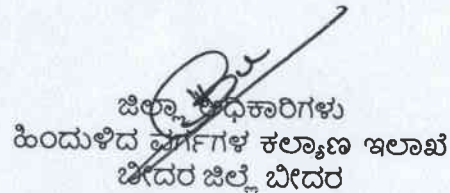 ಜಿಲ್ಲಾ ಅಧಿಕಾರಿಗಳು
ಹಿಂದುಳಿದ ವರ್ಗಗಳ ಕಲ್ಯಾಣ ಇಲಾಖೆ
ಬೀದರ ಜಿಲ್ಲೆ ಬೀದರ